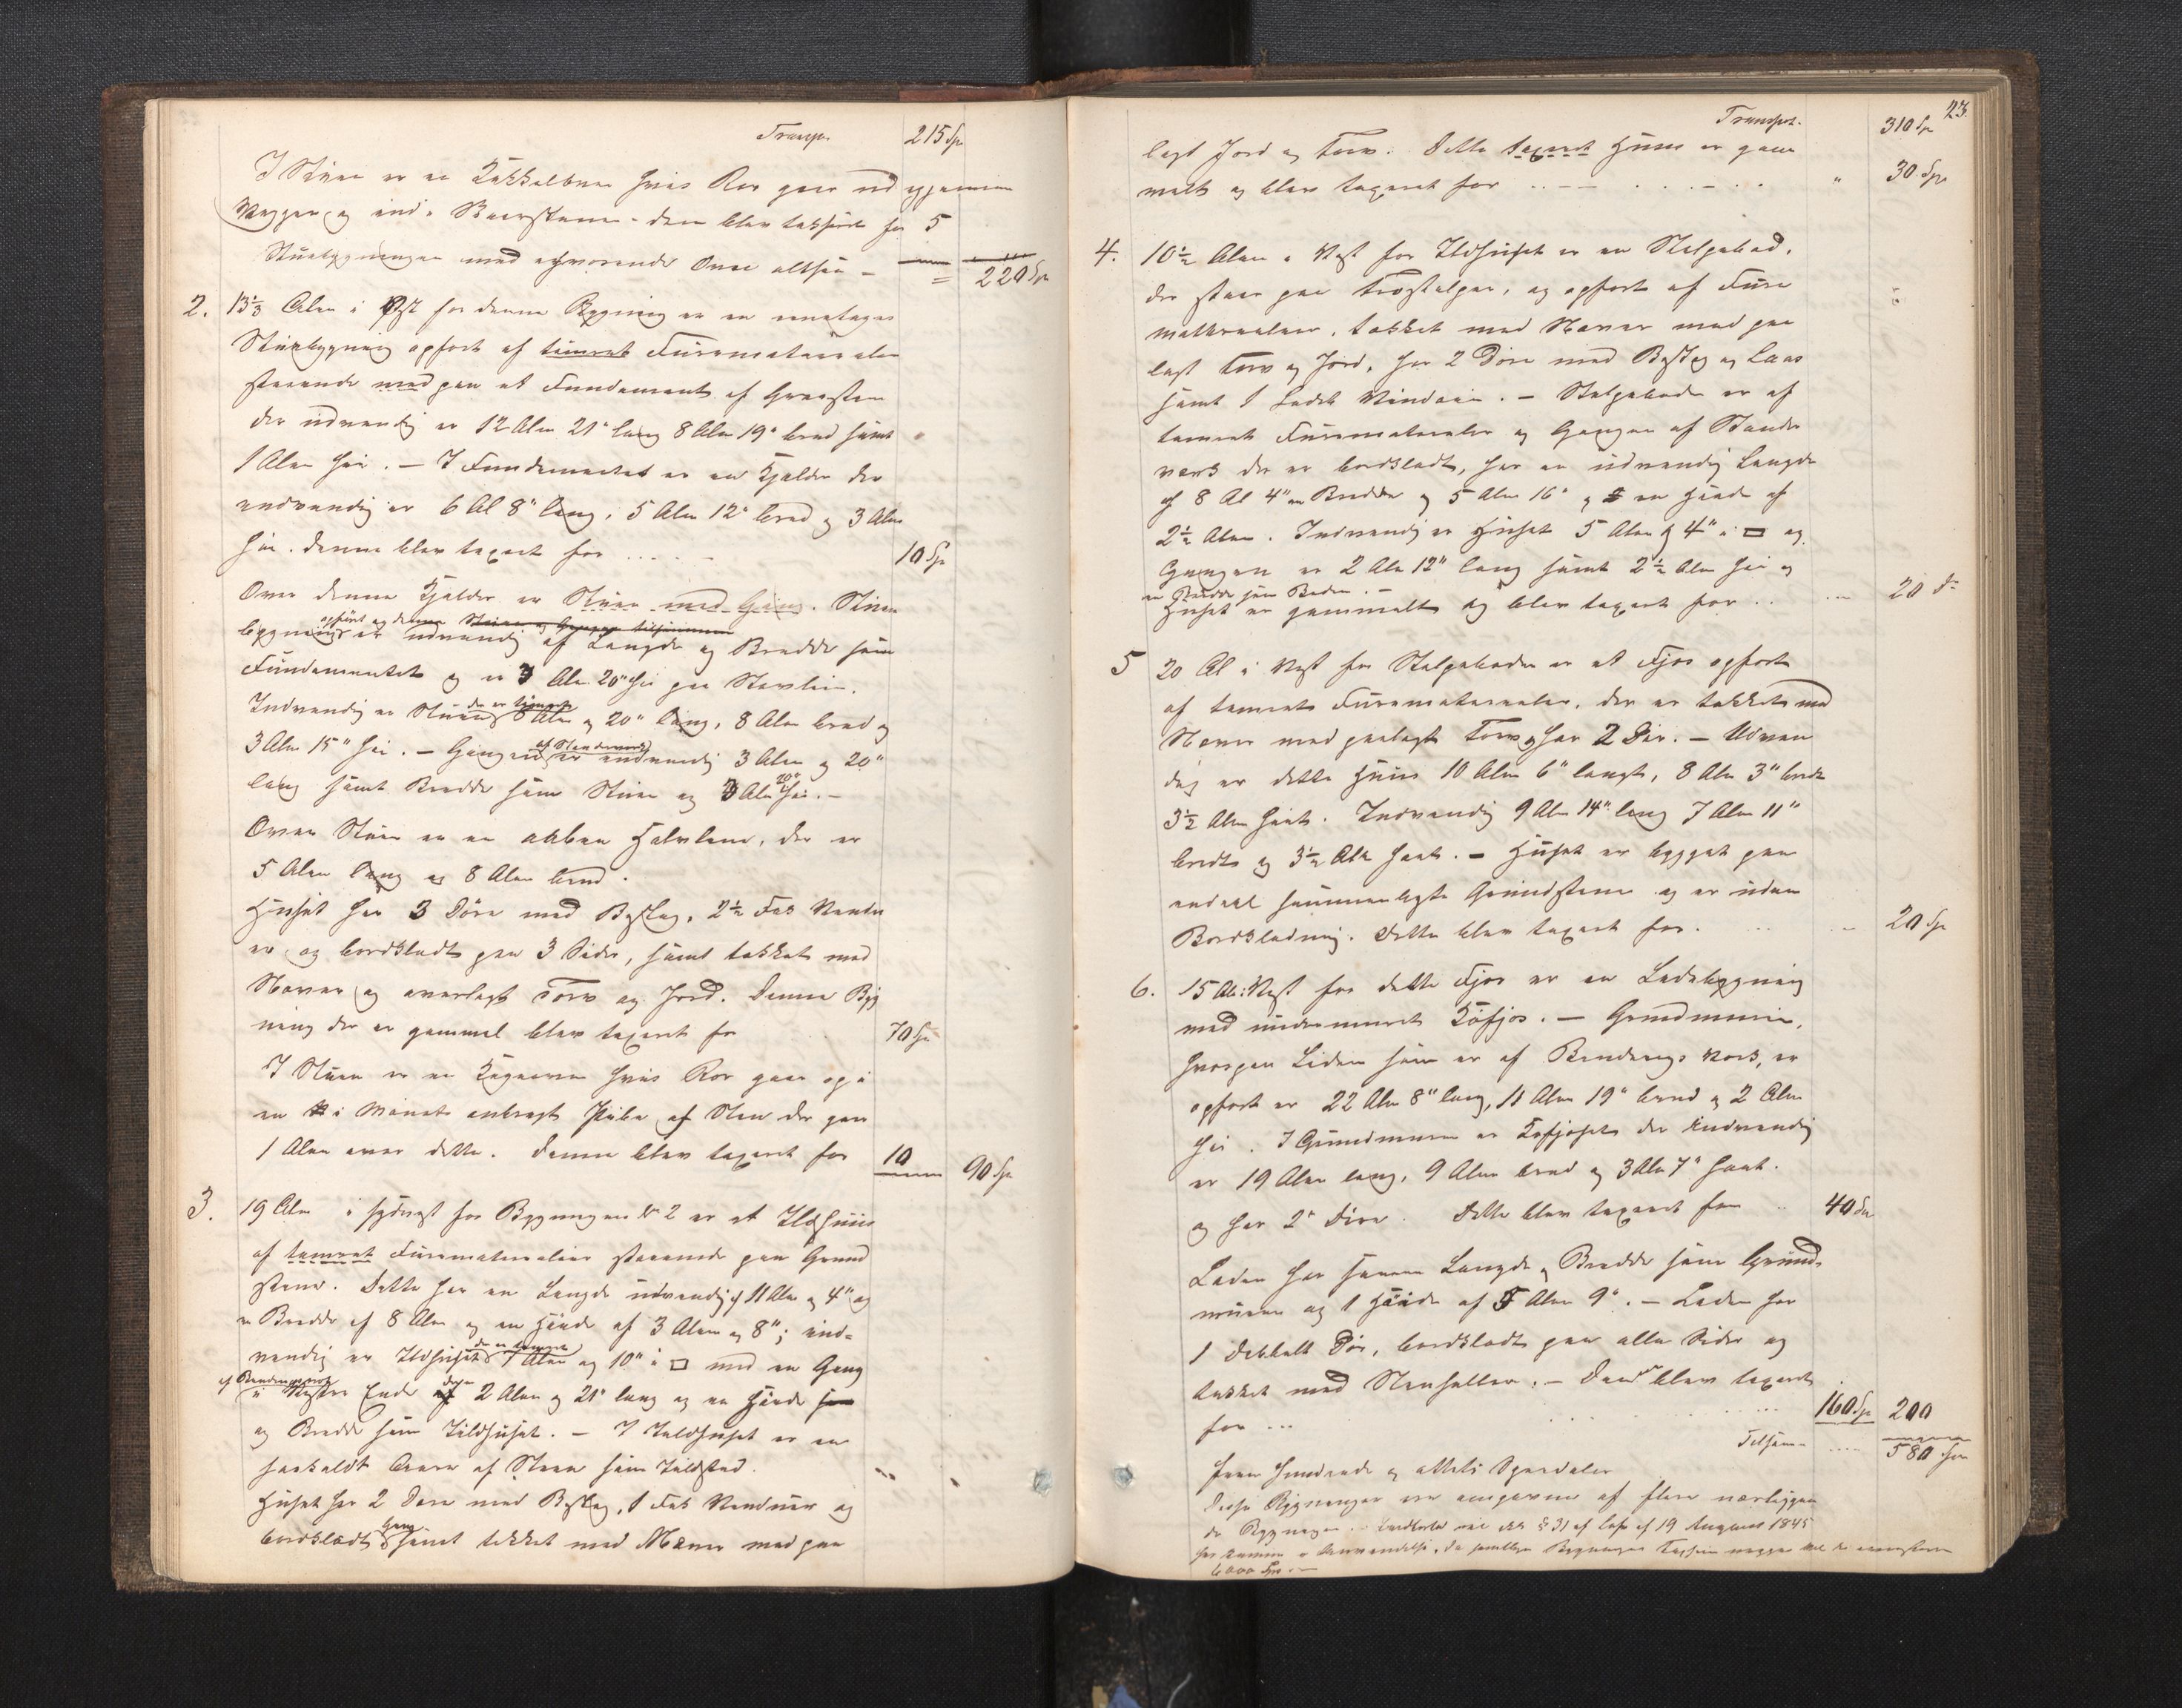 Transp. 215 Sp
I Stuen er en Kakkelovn hvis Rør gaar ud igjennem
Væggen og ind i Skorstenen - den blev taxeret for 5
Stuebygningen med nysværende Ovne altsaa - = 220 Sp
2. 13½ Alen i Øst for denne Bygning er en eenetages
Stuebygning opført af tømret Furumaterialier
staaende med paa et Fundament af Graasten
der udvendig er 12 Alen 21" lang 8 Alen 19" bred samt
1 Alen høi. — I Fundamentet er en Kjælder der
indvendig er 6 Al 8" lang, 5 Alen 12" bred og 3 Alen
høi. denne blev taxeret for ..... 10 Sp
Over denne Kjælder er Stuen med Gang. Stue
opført og denne Stuen og Gangen tilsammen
bygningen er udvendig af Længde og Bredde som
Fundamentet og er 3 Alen 20" høi paa Stavlein.
der er tømret
Indvendig er Stuen 8 Alen og 20" lang, 8 Alen bred og
af Standværk
3 Alen 15" høi. — Gangen er indvendig 3 Alen og 20"
20"
lang samt Bredde som Stuen og 3 Alen høi. —
Over Stuen er en aaben Halvlem, der er
5 Alen lang og 8 Alen bred.
Huset har 3 Døre med Beslag, 2½ Fag Vindu
er og bordklædt paa 3 Sider, samt tækket med
Næver og overlagt Torv og Jord. Denne Byg
ning der er gammel blev taxeret for 70 Sp
I Stuen er en Kogeovn hvis Rør gaar op i
en i Mønet anbragt Pibe af Sten der gaar
1 Alen over dette. Denne blev taxeret for 10 90 Sp
3. 19 Alen i Sydvest for Bygningen № 2 er et Ildhuus
af tømret Furumaterialier staaende paa Grund
stene. Dette har en Længde udvendig af 11 Alen og 4" og
en Bredde af 8 Alen og en Høide af 3 Alen og 8"; ind=
der er tømret
vendig er Ildhuset 7 Alen og 10" i □ med en Gang
af Bindingsværk der er
i Vestre Ende af 2 Alen og 21" lang og en Høide som
og Bredde som Ildhuset. — I Ildhuset er en
saakaldt Aaren af Steen som Ildsted.
Huset har 2 Døre med Beslag, 1 Fag Vinduer og
Gang
bordklædt samt tækket med Næver med paa
23.
Transport. 310 Sp
lagt Jord og Torv. Dette taxeret Huus er gam
melt og blev taxeret for .. — — . . . — . . " 30 Sp
4. 10½ Alen i Vest for Ildhuset er en Stolpebod,
der staar paa Træstolper, og opført af Furu
matrealier, tækket med Næver med paa
lagt Torv og Jord, har 2 Døre med Beslag og Laas
samt 1 Lidet Vindue. — Stolpeboden er af
tømret Furumaterialier og Gangen af Stander
værk der er bordklædt, har en udvendig Længde
af 8 Al 4" en Bredde af 5 Alen 16" og en Høide af
2½ Alen. Indvendig er Huset 5 Alen og 4" i □ og
Gangen er 2 Alen 12" lang samt 2½ Alen høi og
en Bredde som Boden. —
Huset er gammelt og blev taxeret for .. ... 20 do
5 20 Al i Vest for Stolpeboden er et Fjøs opført
af tømret Furumaterialier, der er tækket med
Næver med paalagt Torv, har 2 Dør. — Udven
dig er dette Huus 10 Alen 6" langt, 8 Alen 3" bredt
3½ Alen høit. Indvendig 9 Alen 14" lang 7 Alen 11"
bredt og 3½ Alen høit. — Huset er bygget paa
endeel sammenlagte Grundstene og er uden
Bordklædning. Dette blev taxeret for. .. — 20 Sp
6. 15 Al i Vest for dette Fjøs er en Ladebygning
med undermuret Kofjøs. — Grundmuren,
hvorpaa Laden som er af Bindings værk, er
opført er 22 Alen 8" lang, 11 Alen 19" bred og 2 Alen
høi. I Grundmuren er Kofjøset der indvendig
er 19 Alen lang, 9 Alen bred og 3 Alen 7" høit.
og har 2 Døre. Dette blev taxeret for .. 40 Sp
Laden har samme Længde og Bredde som Grund-
muren og 1 Høide af 5 Alen 9". — Laden har
1 Dobbelt Dør, bordklædt paa alle Sider og
tækket med Stenheller. — Den blev taxeret
for ... 160 Sp 200
Tilsam- .... 580 Spd
fem hundrede og otteti Speciedaler
Disse Bygninger ere omgivne af flere nærliggen
de Bygninger. § 31 af Lov af 19 August 1845
har kommen i Anvendelse, da samtlige Bygninger
6000 Spd. —